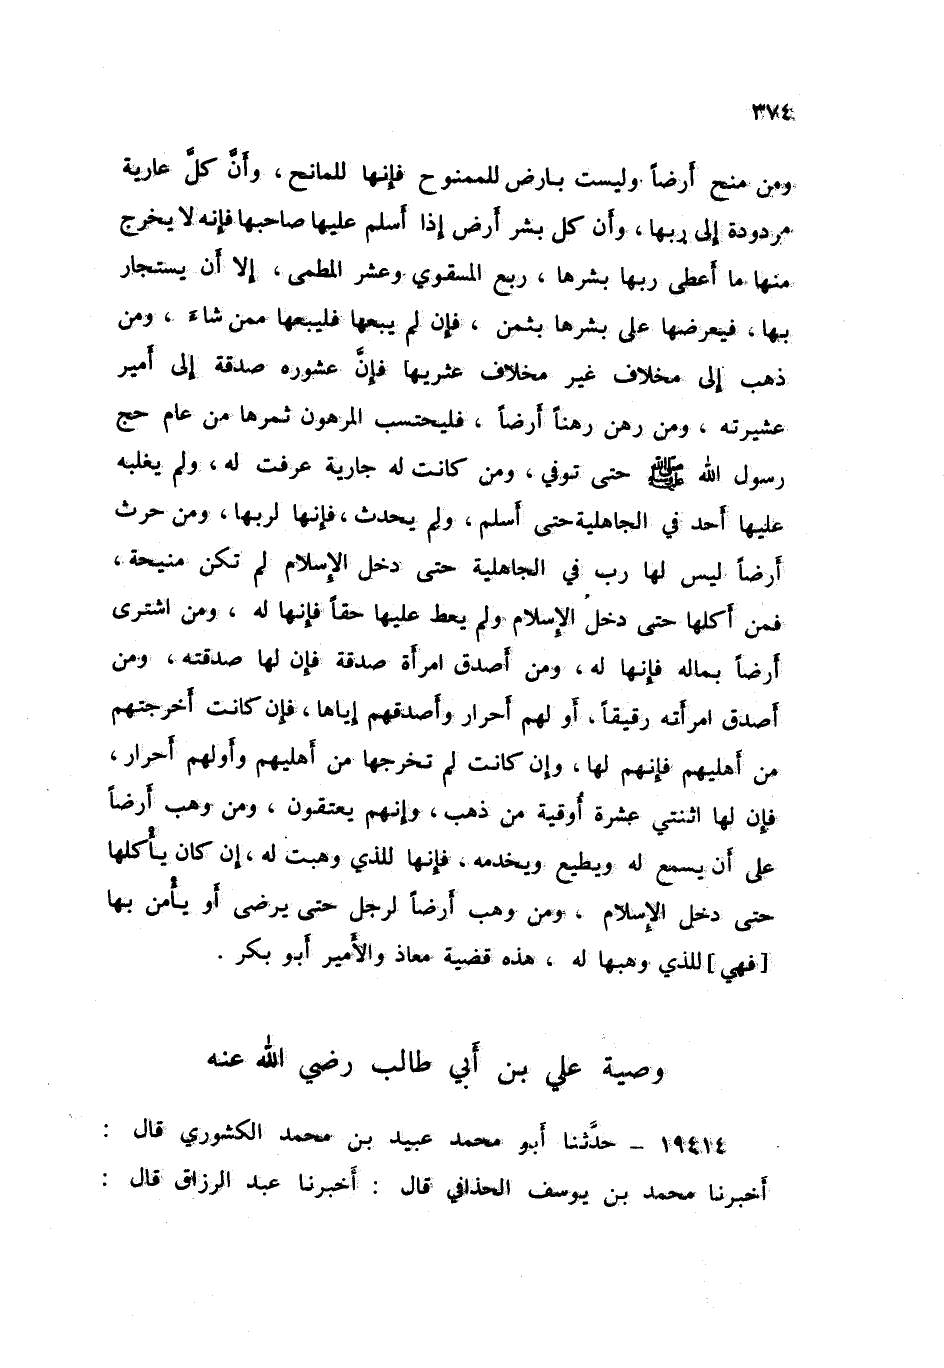 ٣٧٤
ومن منح أرضاً وليست بارض للممنوح فإنها للمانح ، وأنَّ كلَّ عارية
مردودة إلى ربها ، وأن كل بشر أرض إذا أسلم عليها صاحبها فإنه لا يخرج
منها ما أعطى ربها بشرها ، ربع المسقوي وعشر المظمى ، إلا أن يستجار
بها ، فيعرضها على بشرها بثمن ، فإن لم يبعها فليبعها ممن شاءَ ، ومن
ذهب إلى مخلاف غير مخلاف عثريها فإنَّ عشوره صدقة إلى أمير
عشيرته ، ومن رهن رهناً أرضاً ، فليحتسب المرهون ثمرها من عام حج
رسول الله ﷺ حتى توفي ، ومن كانت له جارية عرفت له ، ولم يغلبه
عليها أحد في الجاهلية حتى أسلم ، ولم يحدث ، فإنها لربها ، ومن حرث
أرضاً ليس لها رب في الجاهلية حتى دخل الإسلام لم تكن منيحة ،
فمن أكلها حتى دخل الإسلام ولم يعط عليها حقاً فإنها له ، ومن اشترى
أرضاً بماله فإنها له ، ومن أصدق امرأة صدقة فإن لها صدقته ، ومن
أصدق امرأته رقيقاً ، أو لهم أحرار وأصدقهم إياها ، فإن كانت أخرجتهم
من أهليهم فإنهم لها ، وإن كانت لم تخرجها من أهليهم وأولهم أحرار ،
فإن لها اثنتي عشرة أُوقية من ذهب ، وإنهم يعتقون ، ومن وهب أرضاً
على أن يسمع له ويطيع ويخدمه ، فإنها للذي وهبت له ، إن كان يأْكلها
حتى دخل الإسلام ، ومن وهب أرضاً لرجل حتى يرضى أو يأْمن بها
[ فهي ] للذي وهبها له ، هذه قضية معاذ والأمير أبو بكر .
وصية علي بن أبي طالب رضي الله عنه
١٩٤١٤ – حدَّثنا أبو محمد عبيد بن محمد الكشوري قال :
أخبرنا محمد بن يوسف الحذافي قال : أخبرنا عبد الرزاق قال :